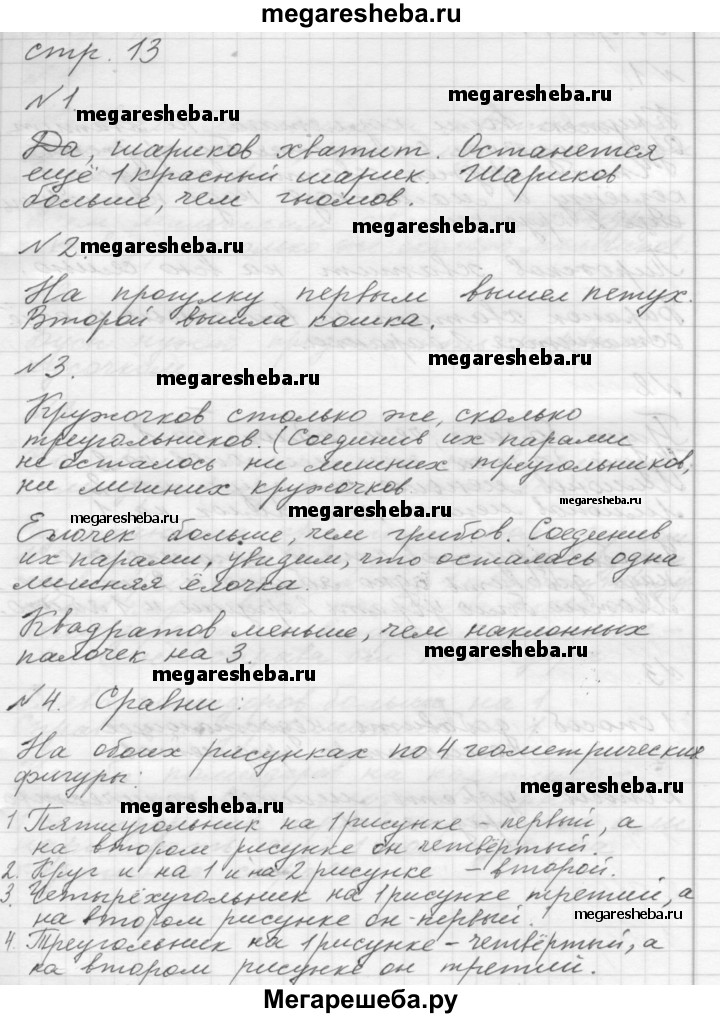 megaresheba.ru
стр. 13
№1
megaresheba.ru
megaresheba.ru
Да, шариков хватит. Останется
ещё 1 красный шарик. Шариков
больше, чем гномов.
megaresheba.ru
№2
megaresheba.ru
На прогулку первым вышел петух.
Второй вышла кошка.
megaresheba.ru
№3.
megaresheba.ru
Кружочков столько же, сколько
треугольников. (Соединив их парами
не осталось ни лишних треугольников,
ни лишних кружочков
megaresheba.ru
megaresheba.ru
megaresheba.ru
Ёлочек больше, чем грибов. Соединив
их парами, увидим, что осталась одна
лишняя ёлочка.
Квадратов меньше, чем наклонных
палочек на 3.
megaresheba.ru
megaresheba.ru
№4. Сравни:
megaresheba.ru
На обоих рисунках по 4 геометрических
фигуры:
megaresheba.ru
megaresheba.ru
1 Пятиугольник на 1 рисунке - первый, а
на втором рисунке он четвёртый.
2. Круг и на 1 и на 2 рисунке - второй.
3. Четырёхугольник на 1 рисунке третий, а
на втором рисунке он - первый.
megaresheba.ru
4. Треугольник на 1 рисунке - четвёртый, а
на втором рисунке он третий.
megaresheba.ru
Мегарешеба.ру